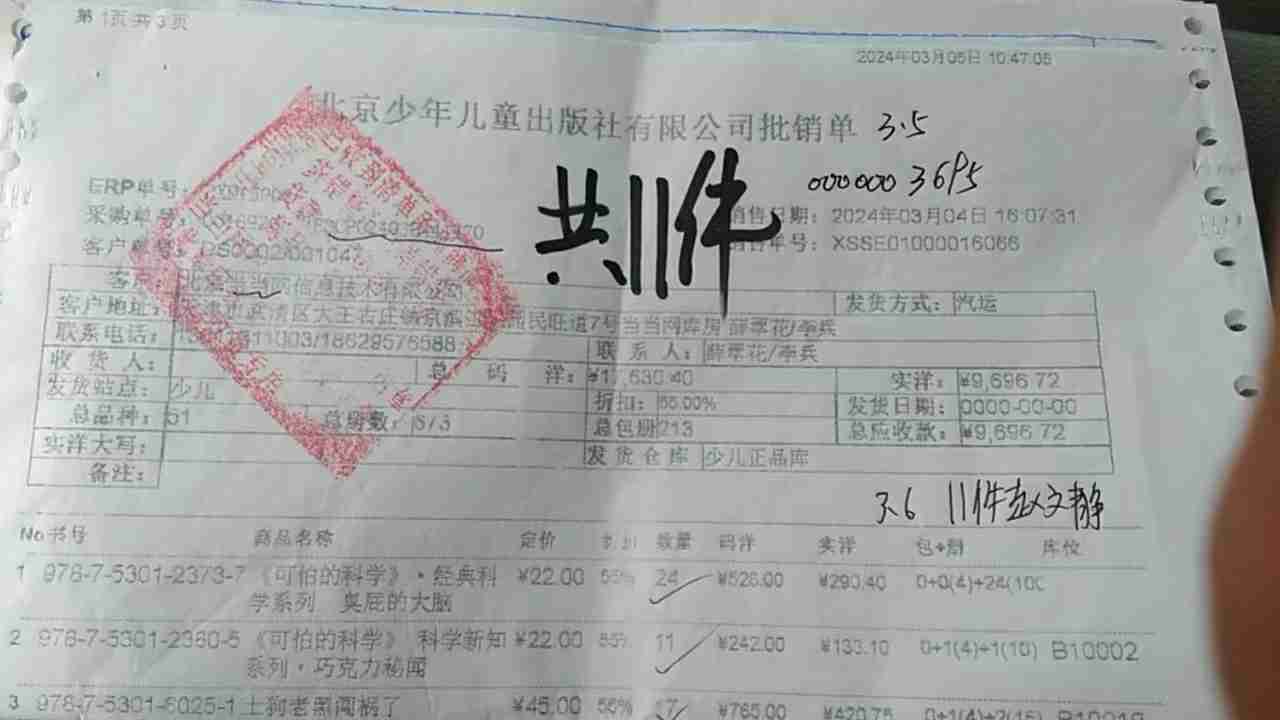 第1页共3页
2024年03月05日 10:47:05
北京少年儿童出版社有限公司批销单 3.5
共11件 000000 3695
ERP单号:
采购单号: 销售日期: 2024年03月04日 16:07:31
客户单号: 售单号: XSSE01000016066
客户: 北京当当网信息技术有限公司 发货方式: 汽运
客户地址: 武清区大王古庄镇京滨 民旺道7号当当网库房 薛翠花/李兵
联系电话: 11003/18629576588 联系人: 薛翠花/李兵
收货人: 总码洋: ¥17,630.40 实洋: ¥9,696.72
发货站点: 少儿 折扣: 55.00% 发货日期: 0000-00-00
总品种: 51 总册数: 673 总包册 213 总应收款: ¥9,696.72
实洋大写: 发货仓库 少儿正品库
备注:
3.6 11件赵文静
No 书号 商品名称 定价 数量 码洋 实洋 包+册 库位
1 978-7-5301-2373-7 《可怕的科学》·经典科 ¥22.00 55% 24 ¥528.00 ¥290.40 0+0(4)+24(10
学系列 臭屁的大脑
2 978-7-5301-2360-5 《可怕的科学》 科学新知 ¥22.00 55% 11 ¥242.00 ¥133.10 0+1(4)+1(10) B10002
系列·巧克力秘闻
3 978-7-5301-6025-1 土狗老黑闯祸了 ¥45.00 55% 17 ¥765.00 ¥420.75